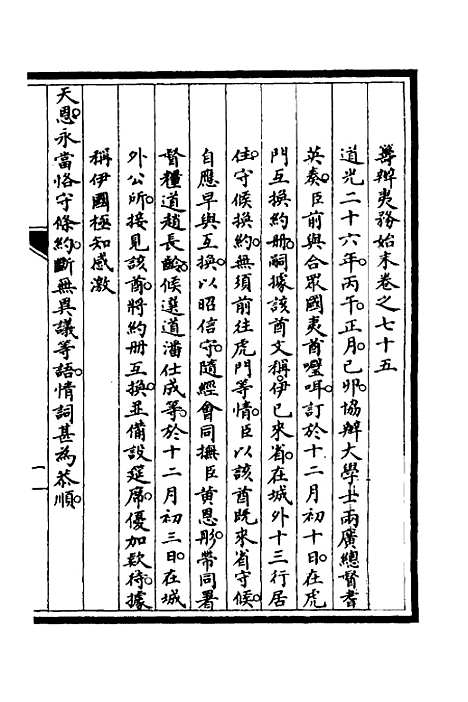 籌辦夷務始末卷之七十五
道光二十六年丙午正月己卯協辦大學士兩廣總督耆
英奏。臣前與合眾國夷酋嘡咡訂於十二月初十日。在虎
門互換約冊。嗣據該酋文稱。伊已來省。在城外十三行居
住。守候換約。無須前往虎門等情。臣以該酋既來省守候。
自應早與互換。以昭信守。隨經會同撫臣黃恩彤。帶同署
督糧道趙長齡。候選道潘仕成等。於十二月初三日。在城
外公所。接見該酋。將約冊互換。並備設筵席。優加款待。據
稱伊國極知感激
天恩。永當恪守條約。斷無異議等語。情詞甚為恭順。
一